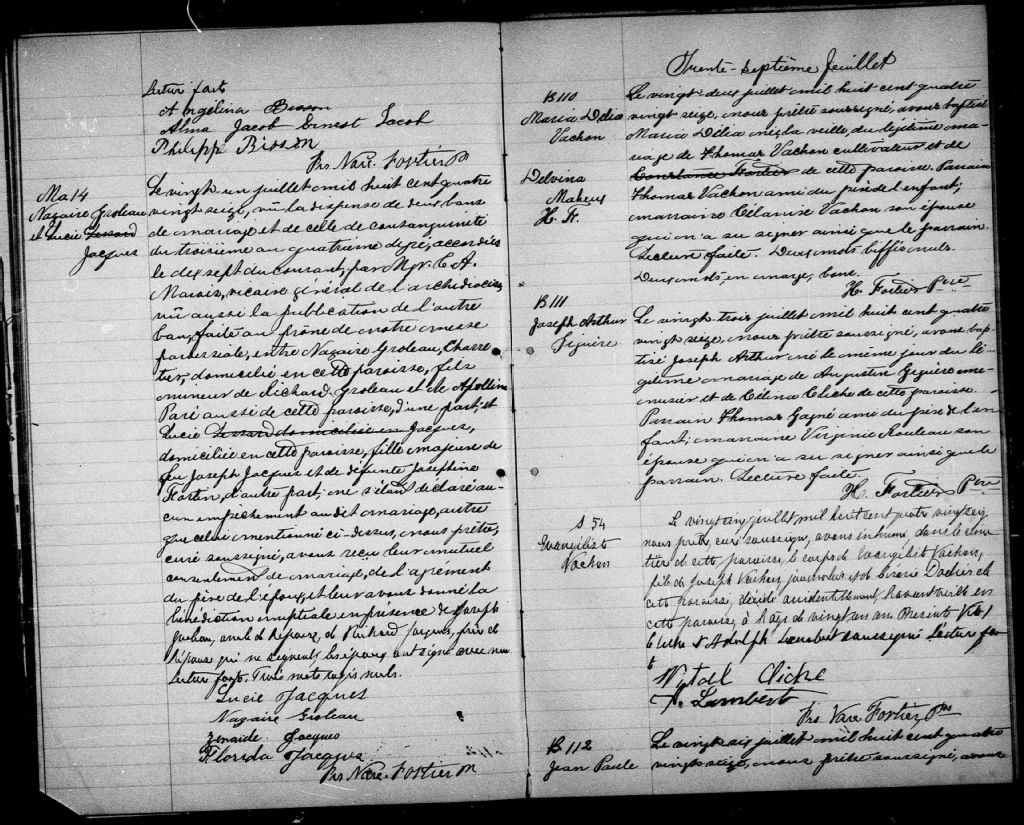 Lecture faite
Angélina Bisson
Alma Jacob Ernest Jacob
Philipp Bisson
Frs Narc. Fortier Ptr
Ma 14
Nazaire Groleau
et Lucie Lessard
Jacques
Le vingt un juillet mil huit cent quatre
vingt seize, vû la dispense de deux bans
de mariage et de celle de consanguinité
du troisième au quatrième degré, accordées
le dix sept du courant, par Mgr. C. A.
Marois, vicaire général de l'archidiocèse
vû aussi la publication de l'autre
ban, faite au prône de notre messe
paroissiale, entre Nazaire Groleau, Charre
tier, domicilié en cette paroisse, fils
mineur de Richard Groleau et de Apolline
Paré aussi de cette paroisse, d'une part; et
Lucie Lessard domiciliée en Jacques,
domiciliée en cette paroisse, fille majeure de
feu Joseph Jacques et de défunte Josephine
Fortin, d'autre part; ne s'étant déclaré au-
cun empêchement au dit mariage, autre
que celui mentionné ci-dessus, nous prêtre,
curé soussigné, avons reçu leur mutuel
consentement de mariage, de l'agrément
du père de l'époux, et leur avons donné la
bénédiction nuptiale en présence de Joseph
Groleau, oncle de l'époux, et de Jacques, frère de
l'épouse qui ne signent, les époux ont signé avec nous
Lecture faite. Trois mots rayés nuls.
Lucie Jacques
Nazaire Groleau
Zenaide Jacques
Florida Jacques
Frs Narc. Fortier Ptr
Trente-septième feuillet
B 110
Maria Délia
Vachon
Delvina
Maheux
H. F.
Le vingt deux juillet mil huit cent quatre
vingt seize, nous prêtre soussigné, avons baptisé
Maria Délia née la veille, du légitime ma-
riage de Thomas Vachon cultivateur et de
Constance Fortier de cette paroisse. Parrain
Thomas Vachon ami du père de l'enfant;
marraine Célanise Vachon son épouse
qui n'a su signer ainsi que le parrain.
Lecture faite. Deux mots biffés nuls.
Deux mots en marge, bons.
H. Fortier Ptre
B 111
Joseph Arthur
Giguère
Le vingt trois juillet mil huit cent quatre
vingt seize, nous prêtre soussigné, avons bap-
tisé Joseph Arthur né le même jour du lé-
gitime mariage de Augustin Giguère me-
nuisier et de Edena Cliche de cette paroisse
Parrain Thomas Gagné ami du père de l'en
fant; marraine Virginie Rouleau son
épouse qui n'a su signer ainsi que le
parrain. Lecture faite.
H. Fortier Ptre
S 54
Evangéliste
Vachon
Le vingt cinq juillet mil huit cent quatre vingt seize
nous prêtre, curé soussigné, avons inhumé dans le cime
tière de cette paroisse, le corps de Evangéliste Vachon,
fils de Joseph Vachon, journalier et de de
cette paroisse, décédé accidentellement, en
cette paroisse, à l'âge de vingt un ans. Présents Vital
Cliche & Adolph Lambert soussignés Lecture fai
te
Vital Cliche
A. Lambert
Frs Narc Fortier Ptre
B 112
Jean Paule
Le vingt six juillet mil huit cent quatre
vingt seize, nous prêtre soussigné, avons